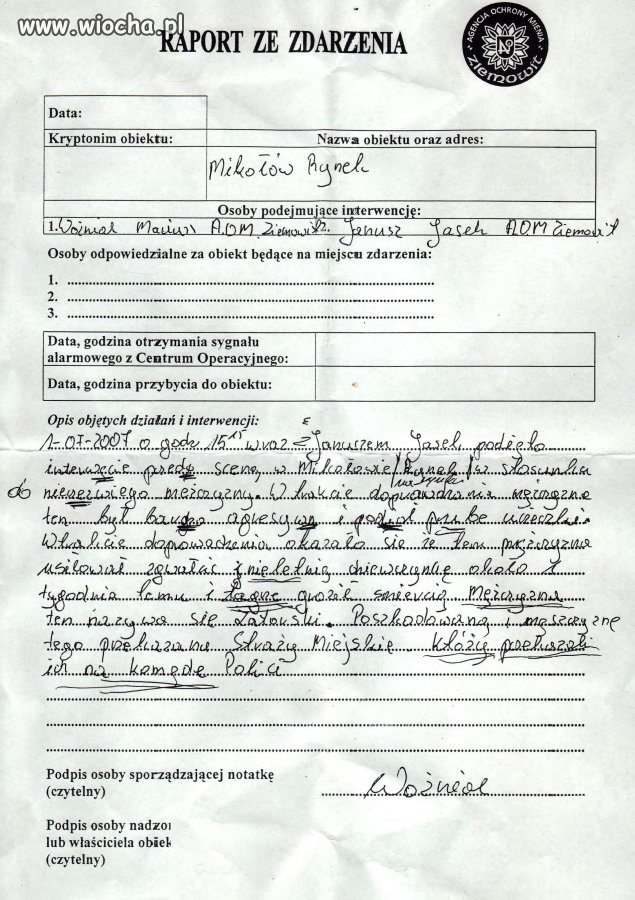 www.wiocha.pl
RAPORT ZE ZDARZENIA
AGENCJA OCHRONY MIENIA
ZIEMOWIT
Data:
Kryptonim obiektu: Nazwa obiektu oraz adres:
Mikołów Rynek
Osoby podejmujące interwencję:
1. Woźniak Mariusz A.O.M. Ziemowit 2. Janusz Jasek A.O.M Ziemowit
Osoby odpowiedzialne za obiekt będące na miejscu zdarzenia:
1.
2.
3.
Data, godzina otrzymania sygnału
alarmowego z Centrum Operacyjnego:
Data, godzina przybycia do obiektu:
Opis objętych działań i interwencji:
1-07-2007 o godz 15 15 wraz z Januszem Jasek podięło
interwęcie przedą sceną w Mikołowie /Rynek/ w stosunku
do nierezwiego męzczyzny. W trakcie doprowadzania męzczyzna
na rynku
ten był bardzo agresywn i podioł prube ucieczki.
W trakcie doprowadzenia okazało się że ten męzczyzna
usiłował zgwałcać nieletnią dziewczynkę około 1
tygodnia temu i tagże groził śmiercią Męzczyzna
ten nazywa się Latowski. Poszkodowaną i męszczyznę
tego przekazano Straży Miejskie którzy
ich na komędę Polici
Podpis osoby sporządzającej notatkę
(czytelny)
Woźniak
Podpis osoby nadzor
lub właściciela obiek
(czytelny)